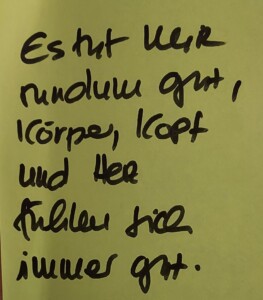 Es tut mir
rundum gut,
Körper, Kopf
und Herz
fühlen sich
immer gut.